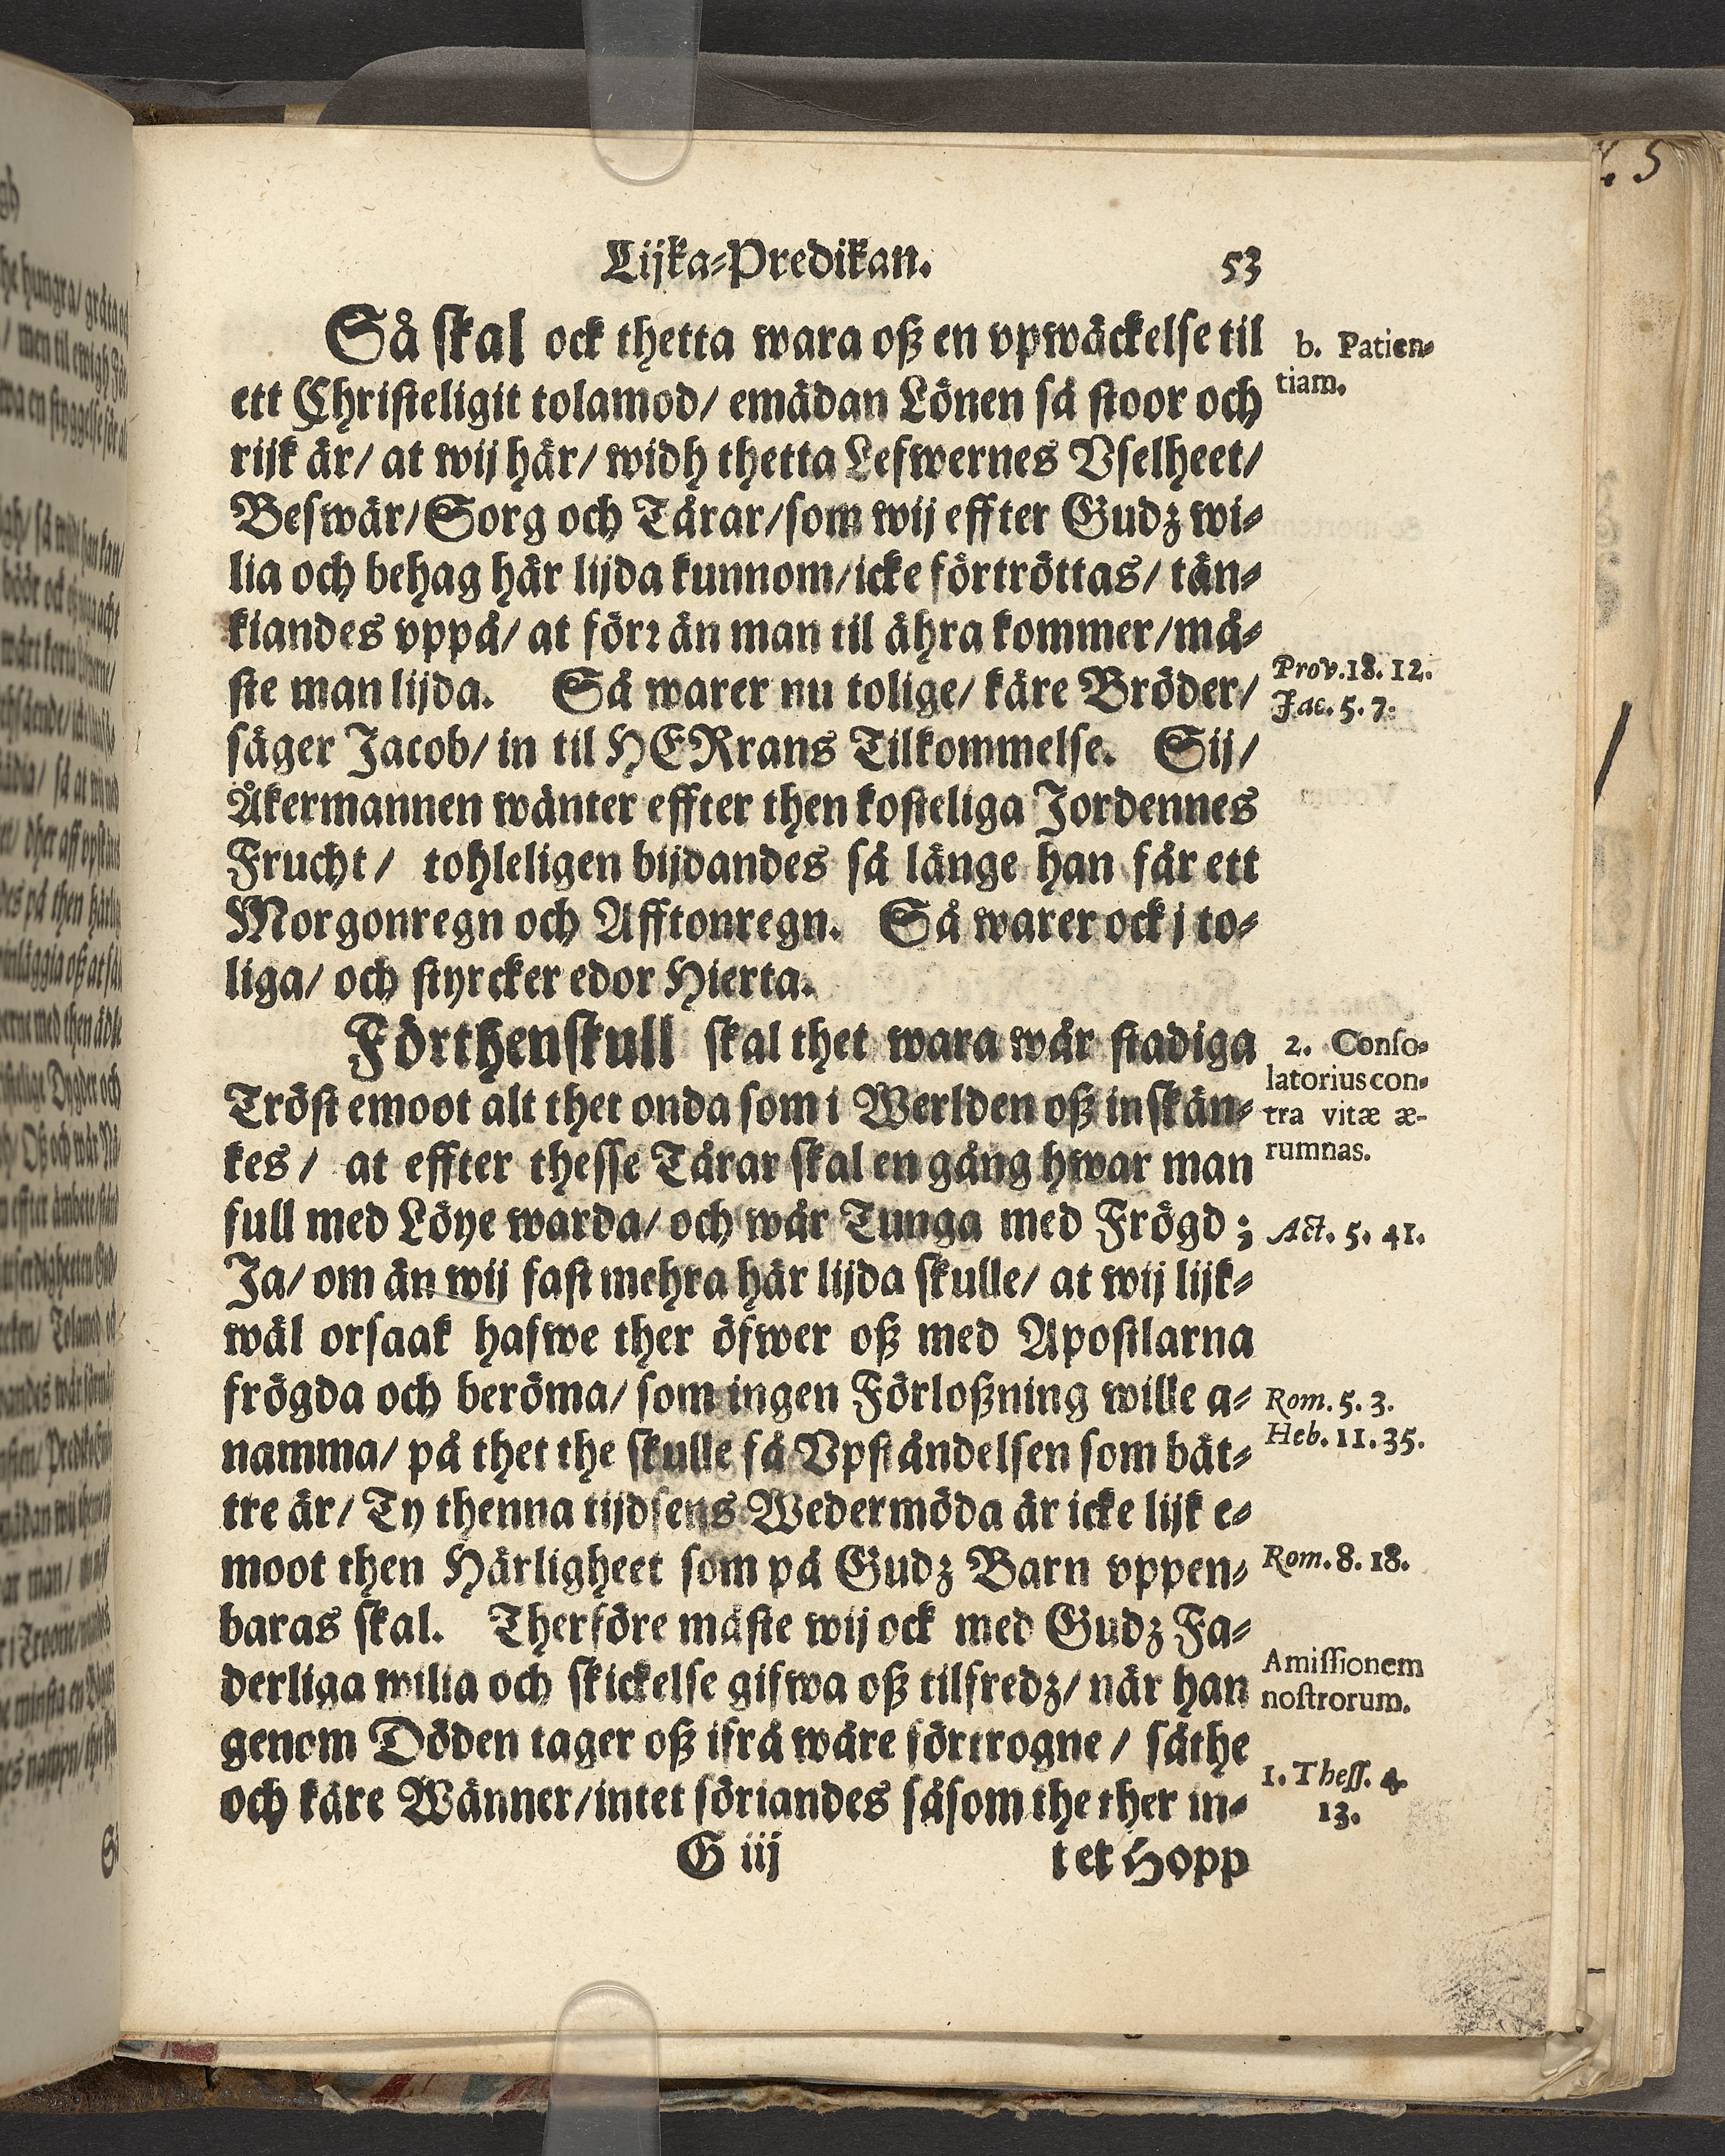 Lijka-Predikan. 53
Så skal ock thetta wara oß en vpwäckelse til
ett Christeligit tolamod/ emädan Lönen så stoor och
rijk är/ at wij här/ widh thetta Lefwernes Vselheet/
Beswär/ Sorg och Tårar/ som wij effter Gudz wi-
lia och behag här lijda kunnom/ icke förtröttas/ tän-
kiandes vppå/ at förr än man til ähra kommer/ må-
ste man lijda. Så warer nu tolige/ käre Bröder/
säger Jacob/ in til HERrans Tilkommelse. Sij/
Åkermannen wänter effter then kosteliga Jordennes
Frucht/ tohleligen bijdandes så länge han får ett
Morgonregn och Afftonregn. Så warer ock j to-
liga/ och styrcker edor Hierta.
Förthenskull skal thet wara wår stadiga
Tröst emoot alt thet onda som i Werlden oß inskän-
kes/ at effter thesse Tårar skal en gång hwar man
full med Löye warda/ och wår Tunga med Frögd;
Ja/ om än wij fast mehra här lijda skulle/ at wij lijk-
wäl orsaak hafwe ther öfwer oß med Apostlarna
frögda och beröma/ som ingen Förloßning wille a-
namma/ på thet the skulle få Vpståndelsen som bät-
tre är/ Ty thenna tijdsens Wedermöda är icke lijk e-
moot then Härligheet som på Gudz Barn vppen-
baras skal. Therföre måste wij ock med Gudz Fa-
derliga wilia och skickelse gifwa oß tilfredz/ när han
genom Döden tager oß ifrå wåre förtrogne/ säthe
och käre Wänner/ intet sörjandes såsom the ther in-
G iij tet Hopp
b. Patien-
tiam.
Prov. 18. 12.
Jac. 5. 7.
2. Conso-
latorius con-
tra vitæ æ-
rumnas.
Act. 5. 41.
Rom. 5. 3.
Heb. 11. 35.
Rom. 8. 18.
Amissionem
nostrorum.
1. Thess. 4
13.